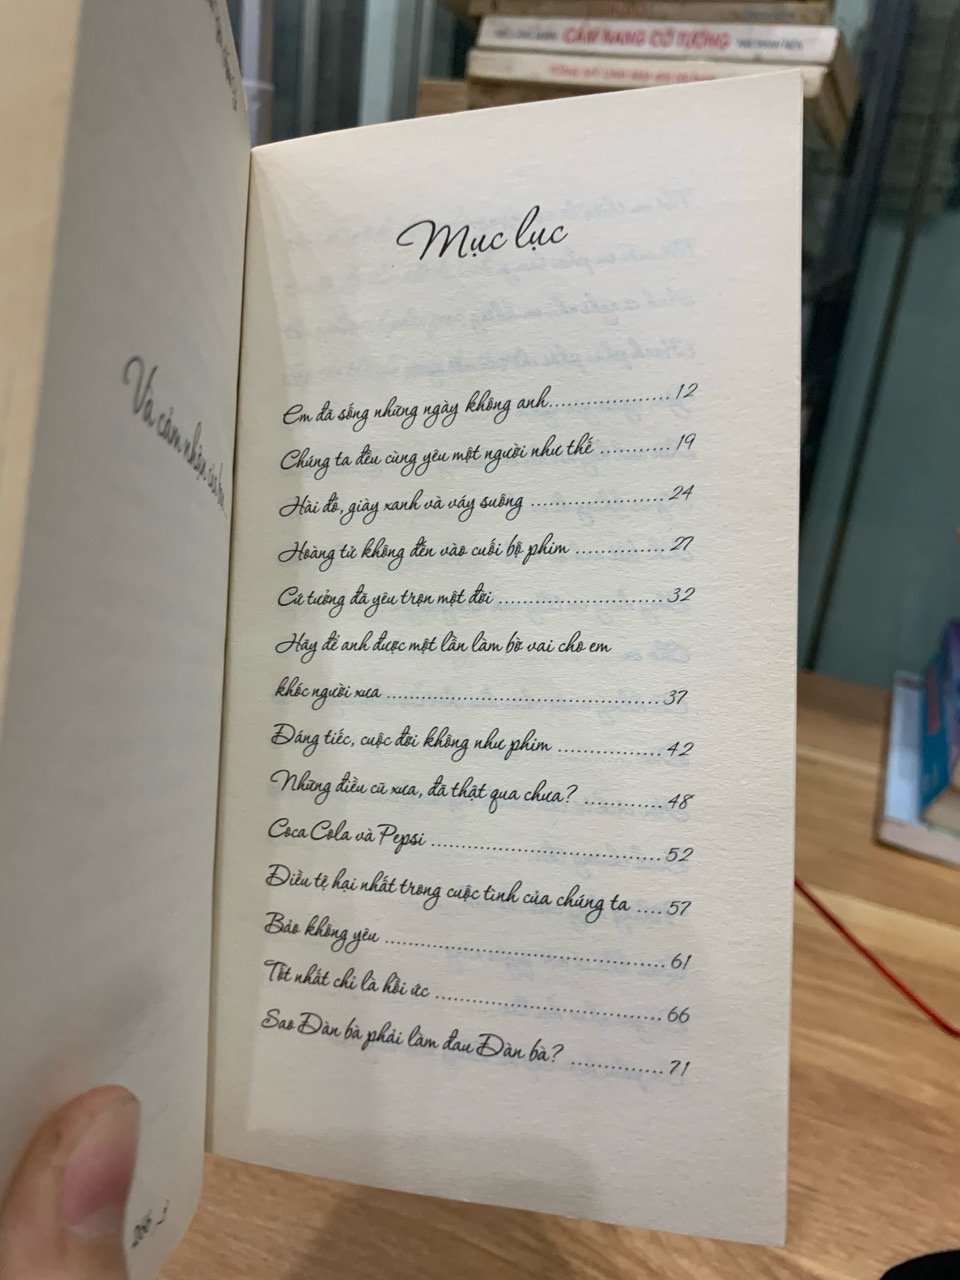 CẨM NANG CỜ TƯỚNG
Và cảm nhận
Mục lục
Em đã sống những ngày không anh....................12
Chúng ta đều cùng yêu một người như thế ...........19
Hài đỏ, giày xanh và váy suông .....................24
Hoàng tử không đến vào cuối bộ phim ..............27
Cứ tưởng đã yêu trọn một đời ...........................32
Hãy để anh được một lần làm bờ vai cho em
khóc người xưa .............................................37
Đáng tiếc, cuộc đời không như phim ................42
Những điều cũ xưa, đã thật qua chưa? .............48
Coca Cola và Pepsi .....................................52
Điều tệ hại nhất trong cuộc tình của chúng ta ....57
Bảo không yêu .............................................61
Tốt nhất chỉ là hồi ức ....................................66
Sao Đàn bà phải làm đau Đàn bà? ...............71
266